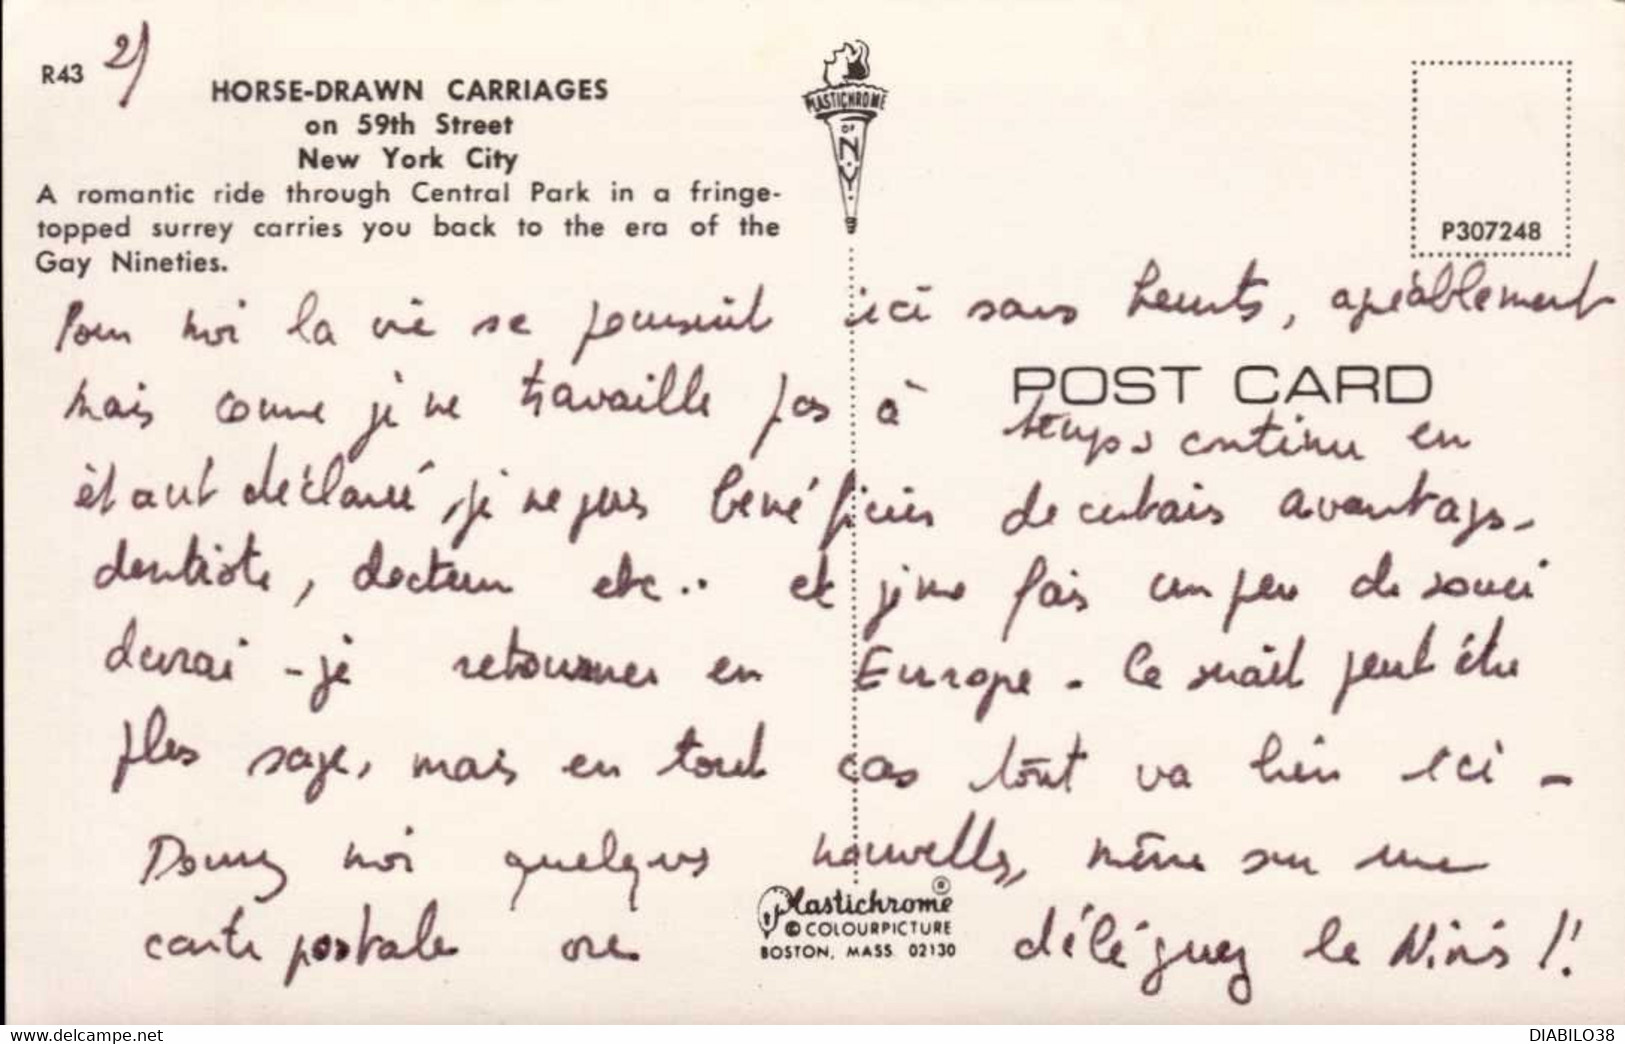 R43 2/
HORSE-DRAWN CARRIAGES
on 59th Street
New York City
A romantic ride through Central Park in a fringe-
topped surrey carries you back to the era of the
Gay Nineties.
PLASTICHROME
OF
N.Y.
P307248
Pour moi la vie se poursuit ici sans heurts, agréablement
POST CARD
mais comme je ne travaille pas à temps continu en
étant déclaré, je ne puis bénéficier de certains avantages.
dentiste, docteur etc.. et je me fais un peu de souci
devrai-je retourner en Europe - Ce serait peut être
plus sage, mais en tout cas tout va bien ici -
Donnez moi quelques nouvelles, même sur une
carte postale ou déléguez le Ninis !!
Plastichrome ®
© COLOURPICTURE
BOSTON, MASS. 02130
https://www.delcampe.net
DIABILO38